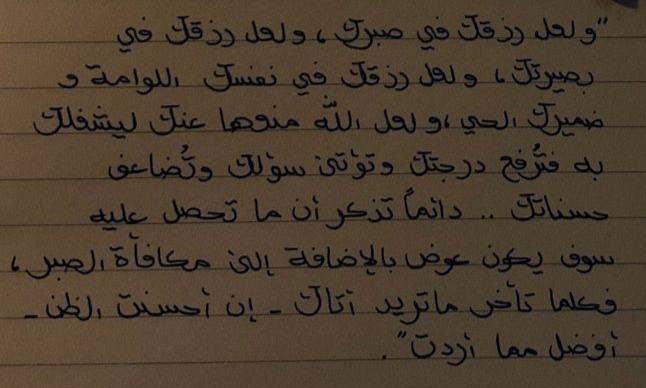 "ولعل رزقك في صبرك، ولعل رزقك في
بصيرتك، ولعل رزقك في نفسك اللوامة و
ضميرك الحي، ولعل الله منعها عنك ليشغلك
به فتُرفع درجتك وتؤتى سؤلك وتُضاعف
حسناتك .. دائماً تذكر أن ما تحصل عليه
سوف يكون عوض بالإضافة إلى مكافأة الصبر،
فكلما تأخر ماتريد أتاك - إن أحسنت الظن -
أفضل مما أردت".